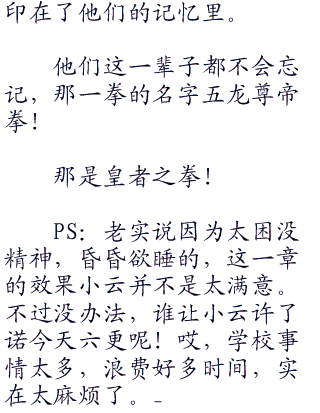 印在了他们的记忆里。
他们这一辈子都不会忘
记，那一拳的名字五龙尊帝
拳！
那是皇者之拳！
PS：老实说因为太困没
精神，昏昏欲睡的，这一章
的效果小云并不是太满意。
不过没办法，谁让小云许了
诺今天六更呢！哎，学校事
情太多，浪费好多时间，实
在太麻烦了。_